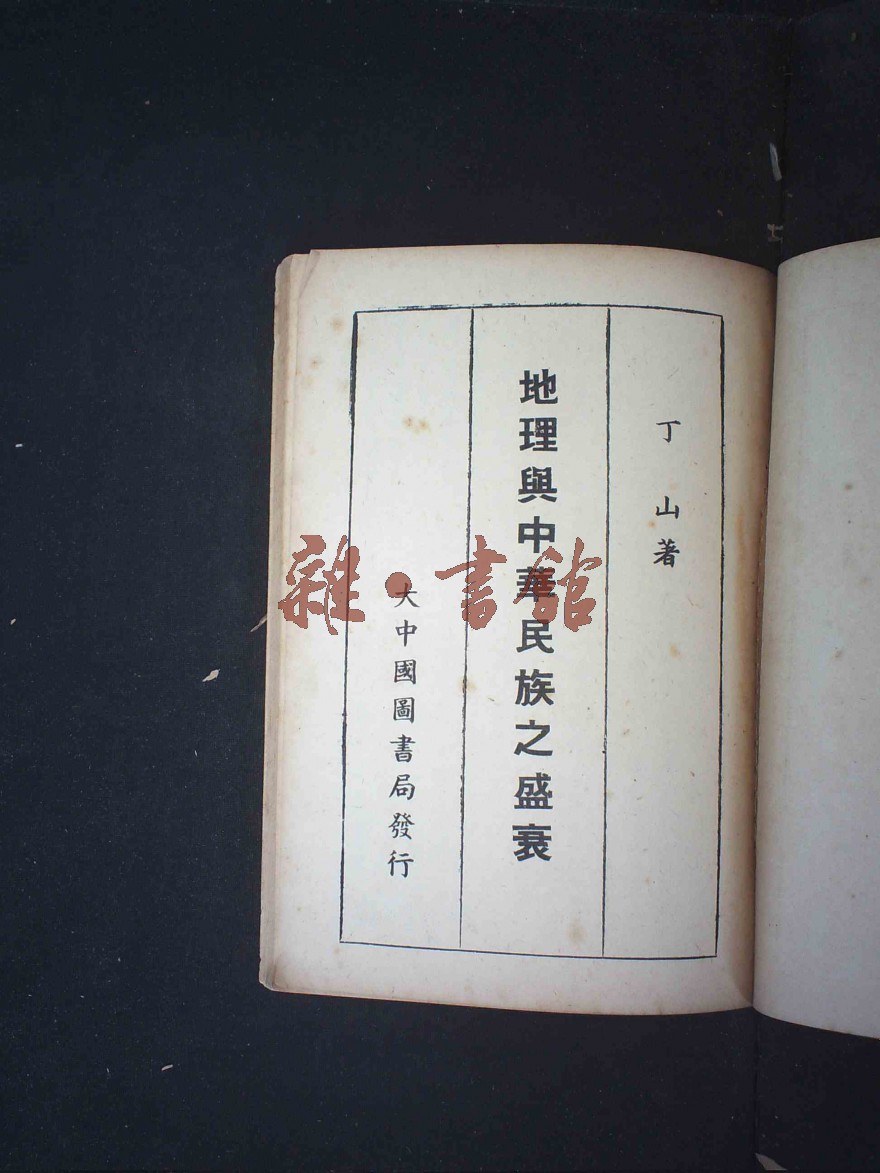 丁山著
地理與中華民族之盛衰
大中國圖書局發行
雜·書館